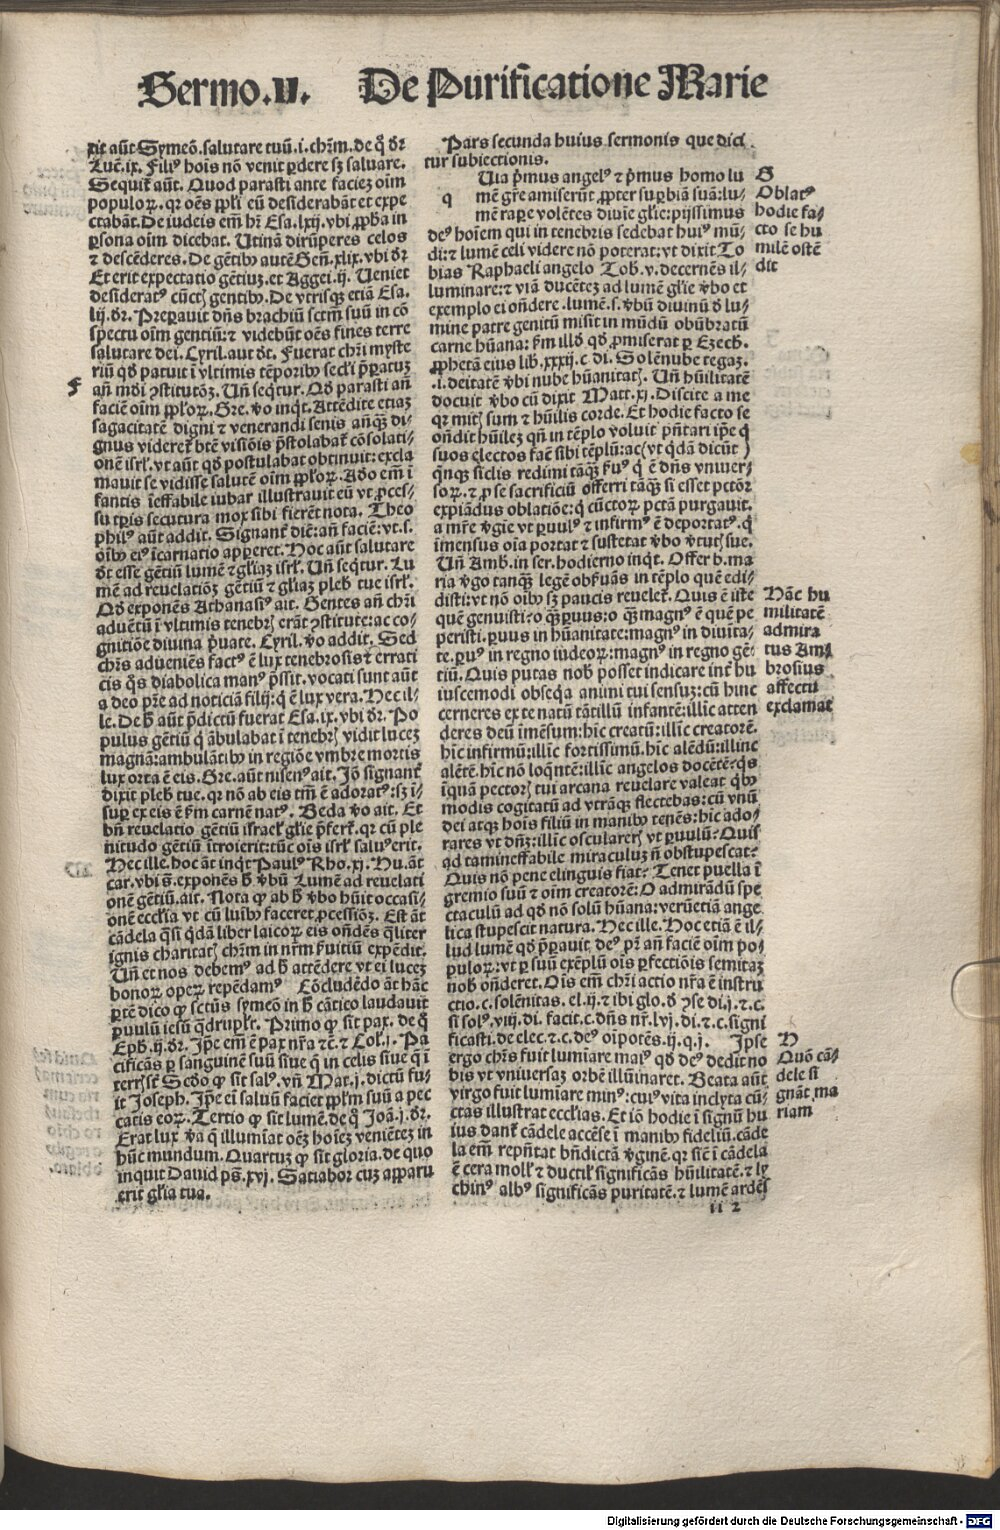 Sermo.V. De Purificatione Marie
xit aūt Symeō. salutare tuū.i. chr̄m. de q̊ dr̄
Luc̄.ix. Filiꝰ hoīs nō venit ꝑdere sꝫ saluare.
Sequit̄ aūt. Quod parasti ante facieꝫ oīm
populoꝝ. qr oēs ppl̄i eū desiderabāt et expe
ctabāt. De iudeis em̄ hr̄ Esa.lxij. vbi ꝓph̄a in
ꝑsona oīm dicebat. Utinā dirūperes celos
⁊ descēderes. De gētibꝰ autē Gen̄.xlix. vbi dr̄
Et erit expectatio gētiuꝫ. et Aggei.ij. Ueniet
desideratꝰ cūct; gentibꝰ. De vtrisqꝫ etiā Esa.
lij. dr̄. Preparauit dn̄s brachiū sctm̄ suū in cō
spectu oīm gentiū: ⁊ videbūt oēs fines terre
salutare dei. Cyril. aut dt̄. Fuerat chr̄i myste
riū qd̄ patuit ī vltimis tēporibꝰ secl'i p̄paratuꝫ
F
an̄ mūdi ꝯstitutōꝫ. Un̄ seqt̄ur. Qd̄ parasti an̄
faciē oīm ppl̄oꝝ. Gre. v̄o inqt̄. Attēdite etiaꝫ
sagacitatē digni ⁊ venerandi senis anq̄ꝫ di-
gnus videret̄ btē visiōis p̄stolabat̄ cōsolati-
onē isrl̄. vt aūt qd̄ postulabat obtinuit: excla
mauit se vidisse salutē oīm ppl̄oꝝ. Adeo em̄ ī
fantis īeffabile iubar illustrauit eū vt ꝓces-
su tꝑis secutura mox sibi fierēt nota. Theo
philꝰ aūt addit. Signant̄ diē: an̄ faciē: vt.s.
oībꝰ eiꝰ īcarnatio appareret. Hoc aūt salutare
dt̄ esse gētiū lumē ⁊ gl̄iaꝫ isrl̄. Un̄ seqt̄ur. Lu
mē ad reuelatiōꝫ gētiū ⁊ gl̄iaꝫ pleb̄ tue isrl̄.
Qd̄ exponēs Athanasiꝰ ait. Gentes an̄ chr̄i
aduētū ī vltimis tenebr̄ erāt ꝯstitute: ac co-
gnitiōe diuina p̄uate. Cyril. v̄o addit. Sed
chr̄s adueniēs factꝰ ē lux tenebrosis ⁊ errati
cis q̄s diabolica manꝰ p̄ssit. vocati sunt aūt
a deo pr̄e ad noticiā filij: q̄ ē lux vera. Hec il-
le. De h̄ aūt p̄dictū fuerat Esa.ix. vbi dr̄. Po
pulus gētiū q̄ ābulabat ī tenebr̄ vidit luceꝫ
magnā: ambulātibꝰ in regiōe vmbre mortis
lux orta ē eis. Gre. aūt nisenꝰ ait. Iō signant̄
dixit pleb̄ tue. qr nō ab eis tm̄ ē adoratꝰ: sꝫ ī-
suꝑ ex eis ē ẜm carnē natꝰ. Beda v̄o ait. Et
bn̄ reuelatio gētiū israel̄ gl̄ie p̄fert̄. qr cū ple
nitudo gētiū ītroierit: tūc oīs isrl̄ saluꝰ erit.
Hec ille. hoc āt inqt̄ Paulꝰ Rho.xj. Hu. āt
car. vbi s̄. exponēs h̄ v̄bū Lumē ad reuelati
onē gētiū. ait. Nota ꝙ ab h̄ v̄bo hūit occasi-
onē eccl̄ia vt cū luībꝰ faceret ꝓcessiōꝫ. Est āt
cādela q̄si q̄dā liber laicoꝝ eis on̄dēs q̄liter
ignis charitat; chr̄m in nr̄m ẜuitiū expēdit.
Un̄ et nos debemꝰ ad h̄ attēdere vt ei luceꝫ
bonoꝝ opeꝝ repēdamꝰ Cōcludēdo āt hāc
ꝑtē dico ꝙ sctūs symeō in h̄ cātico laudauit
ꝑuulū iesū q̄drupl'r. Primo ꝙ sit pax. de q̊
Eph̄.ij. dr̄. Ip̄e em̄ ē pax nr̄a ⁊c̄. ⁊ Col̄.j. Pa
cificās ꝑ sanguinē suū siue q̄ in celis siue q̄ ī
terr; st̄. Scd̄o ꝙ sit salꝰ. vn̄ Mat.j. dictū fu-
it Joseph. Ip̄e ei saluū faciet ppl̄m suū a pec
catis eoꝝ. Tertio ꝙ sit lumē. de q̊ Joā.j. dr̄.
Erat lux v̄a q̄ illumīat oēꝫ hoīeꝫ veniētez in
hūc mundum. Quartuꝫ ꝙ sit gloria. de quo
inquit Dauid ps̄.xvj. Satiabor cuꝫ apparu
erit gl̄ia tua.
Pars secunda huius sermonis que dici
tur subiectionis.
q
Uia p̄mus angelꝰ ⁊ p̄mus homo lu
mē gr̄e amiserūt ꝓpter suꝑbiā suā: lu-
mē raꝑe volētes diuīe gl̄ie: pijssimus
deꝰ hoīem qui in tenebris sedebat huiꝰ mū-
di: ⁊ lumē celi videre nō poterat: vt dixit To
bias Raphaeli angelo Tob.v. decernēs il-
luminare: ⁊ viā ducēteꝫ ad lumē gl̄ie v̄bo et
exemplo ei on̄dere. lumē.s. v̄bū diuinū d̄ lu-
mine patre genitū misit in mūdū obūbratū
carne hūana: ẜm ill̄d qd̄ ꝓmiserat ꝑ Ezech̄.
ꝓphetā eius lib.xxxij.c. di. Solē nube tegaꝫ.
.i. deitatē v̄bi nube hūanitat;. Un̄ hūilitatē
docuit v̄bo cū dixit Matt.xj. Discite a me
qr mit; sum ⁊ hūilis corde. Et hodie facto se
on̄dit hūileꝫ qn̄ in tēplo voluit p̄ntari ip̄e q̄
suos electos facē sibi tēplū: ac (vt q̄dā dicūt)
q̄nqꝫ siclis redimi tāq̄ꝫ ẜuꝰ q̄ ē dn̄s vniuer-
soꝝ. ⁊ ꝓ se sacrificiū offerri tāq̄ꝫ si esset pctōr
expiādus oblatiōe: q̄ cūctoꝝ pctā purgauit.
a mr̄e v̄gie vt ꝑuulꝰ ⁊ infirmꝰ ē deportatꝰ. q̄
īmensus oīa portat ⁊ sustētat v̄bo v̄tut; sue.
Un̄ Amb. in ser. hodierno inqt̄. Offer b. ma
ria v̄go tanq̄ꝫ legē obẜuās in tēplo quē edi-
disti: vt nō oībꝰ sꝫ paucis reuelet̄. Quis ē iste
quē genuisti? o q̄ꝫ ꝑuus: o q̄ꝫ magnꝰ ē quē pe
peristi. ꝑuus in hūanitate: magnꝰ in diuīta-
te. ꝑuꝰ in regno iudeoꝝ: magnꝰ in regno gē-
tiū. Quis putas nob̄ posset indicare int̄ hu
iuscemodi obseq̄a animi tui sensuꝫ: cū hinc
cerneres ex te natū tātillū infantē: illīc atten
deres deū īmēsum: hīc creatū: illīc creatorē.
hīc infirmū: illīc fortissimū. hīc alēdū: illinc
alētē. hīc nō loq̄ntē: illīc angelos docētē? q̄s
īquā pector; tui arcana reuelare valeat q̄bꝰ
modis cogitatū ad vtrāqꝫ flectebas: cū vnū
dei atqꝫ hoīs filiū in manibꝰ tenēs: hīc ado-
rares vt dn̄ꝫ: illīc oscularer; vt ꝑuulū? Quis
ad tam ineffabile miraculuꝫ n̄ obstupescat?
Quis nō pene elinguis fiat? Tenet puella ī
gremio suū ⁊ oīm creatorē: O admirādū spe
ctaculū ad qd̄ nō solū hūana: veruetiā ange
lica stupescit natura. Hec ille. Hoc etiā ē il-
lud lumē qd̄ p̄parauit deꝰ pr̄ an̄ faciē oīm po-
puloꝝ: vt ꝑ suū exēplū oīs ꝑfectiōis semitaꝫ
nob̄ on̄deret. Oīs em̄ chr̄i actio nr̄a ē instru
ctio.c. solēnitas. el.ij. ⁊ ibi glo. d̄ ꝯse di.j. ⁊.c.
si solꝰ.viij. di. facit.c. dn̄s nr̄.lvj. di. ⁊.c. signi
ficasti. de elec. ⁊.c. deꝰ oīpotēs.ij.q.j. Ipse
ergo chr̄s fuit lumīare maiꝰ qd̄ deꝰ dedit no
bis vt vniuersaꝫ orbē illūinaret. Beata aūt
virgo fuit lumiare minꝰ: cuiꝰ vita inclyta cū-
ctas illustrat eccl̄ias. Et iō hodie ī signū hu
ius dant̄ cādele accēse ī manibꝰ fideliū. cāde
la em̄ rep̄ntat bn̄dictā v̄ginē. qr sic̄ ī cādela
ē cera moll; ⁊ ductil; significās hūilitatē. ⁊ ly
chinꝰ albꝰ significās puritatē. ⁊ lumē ardēs
G
Oblatꝰ
hodie fa-
cto se hu
milē ostē
dit
Hāc hu
militatē
admira
tus Am-
brosius
affectu
exclamat
H
Quō cā-
dele si
gnāt ma
riam
Digitalisierung gefördert durch die Deutsche Forschungsgemeinschaft - DFG